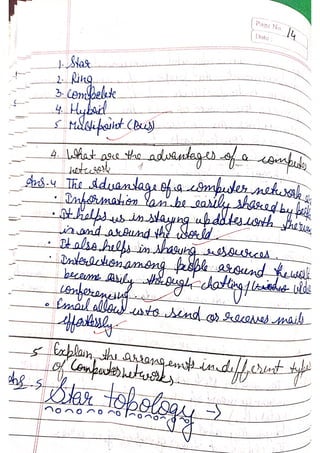 Page No. 14
Date
1. Star
2. Ring
3. Compelete
4. Hybrid
5. Multipoint (Bus)
4. What are the advantages of a computer
network
Ans.4 The Advantage of a computer network
• Information can be easily shared by
• It helps us in staying updates with the
in and around the world
• It also helps in sharing resources
• Interaction among people around the
become easily through chatting /
conferencing
• Email allows us to send or receives mails
effortlessly
5 Explain the arrangements in different type
of computer networks
Ans. 5
Star topology →